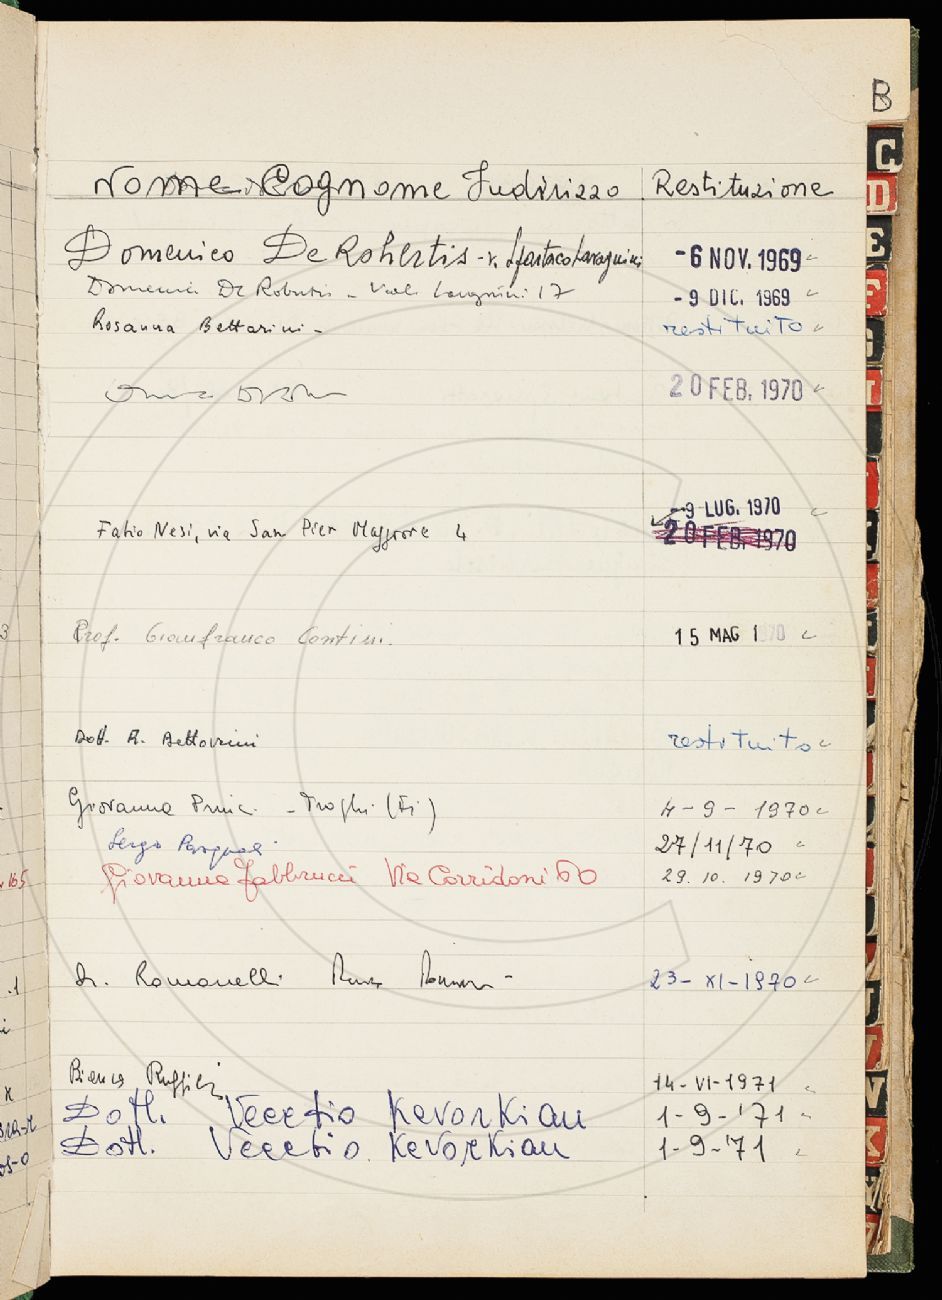 B
Nome e Cognome Indirizzo Restituzione
Domenico De Robertis - v. Spartaco Lavagnini -6 NOV. 1969
Domenico De Robertis - Viale Lavagnini 17 -9 DIC. 1969
Rosanna Bettarini - restituito
20 FEB. 1970
-9 LUG. 1970
Fabio Nesi, via San Pier Maggiore 4 20 FEB. 1970
3
Prof. Gianfranco Contini. 15 MAG 1970
Dott. R. Bettarini restituito
Giovanna - Troghi (Fi) 4-9-1970
Sergio Pasquali 27/11/70
165 Giovanna Fabbrucci Via Corridoni 60 29.10.1970
Dr. Romanelli 23-XI-1970
.1
Bianca 14-VI-1971
Dott. Vecetio Kevorkian 1-9-'71
Dott. Vecetio Kevorkian 1-9-'71
C
D
E
F
G
V
W
X
Y
Z